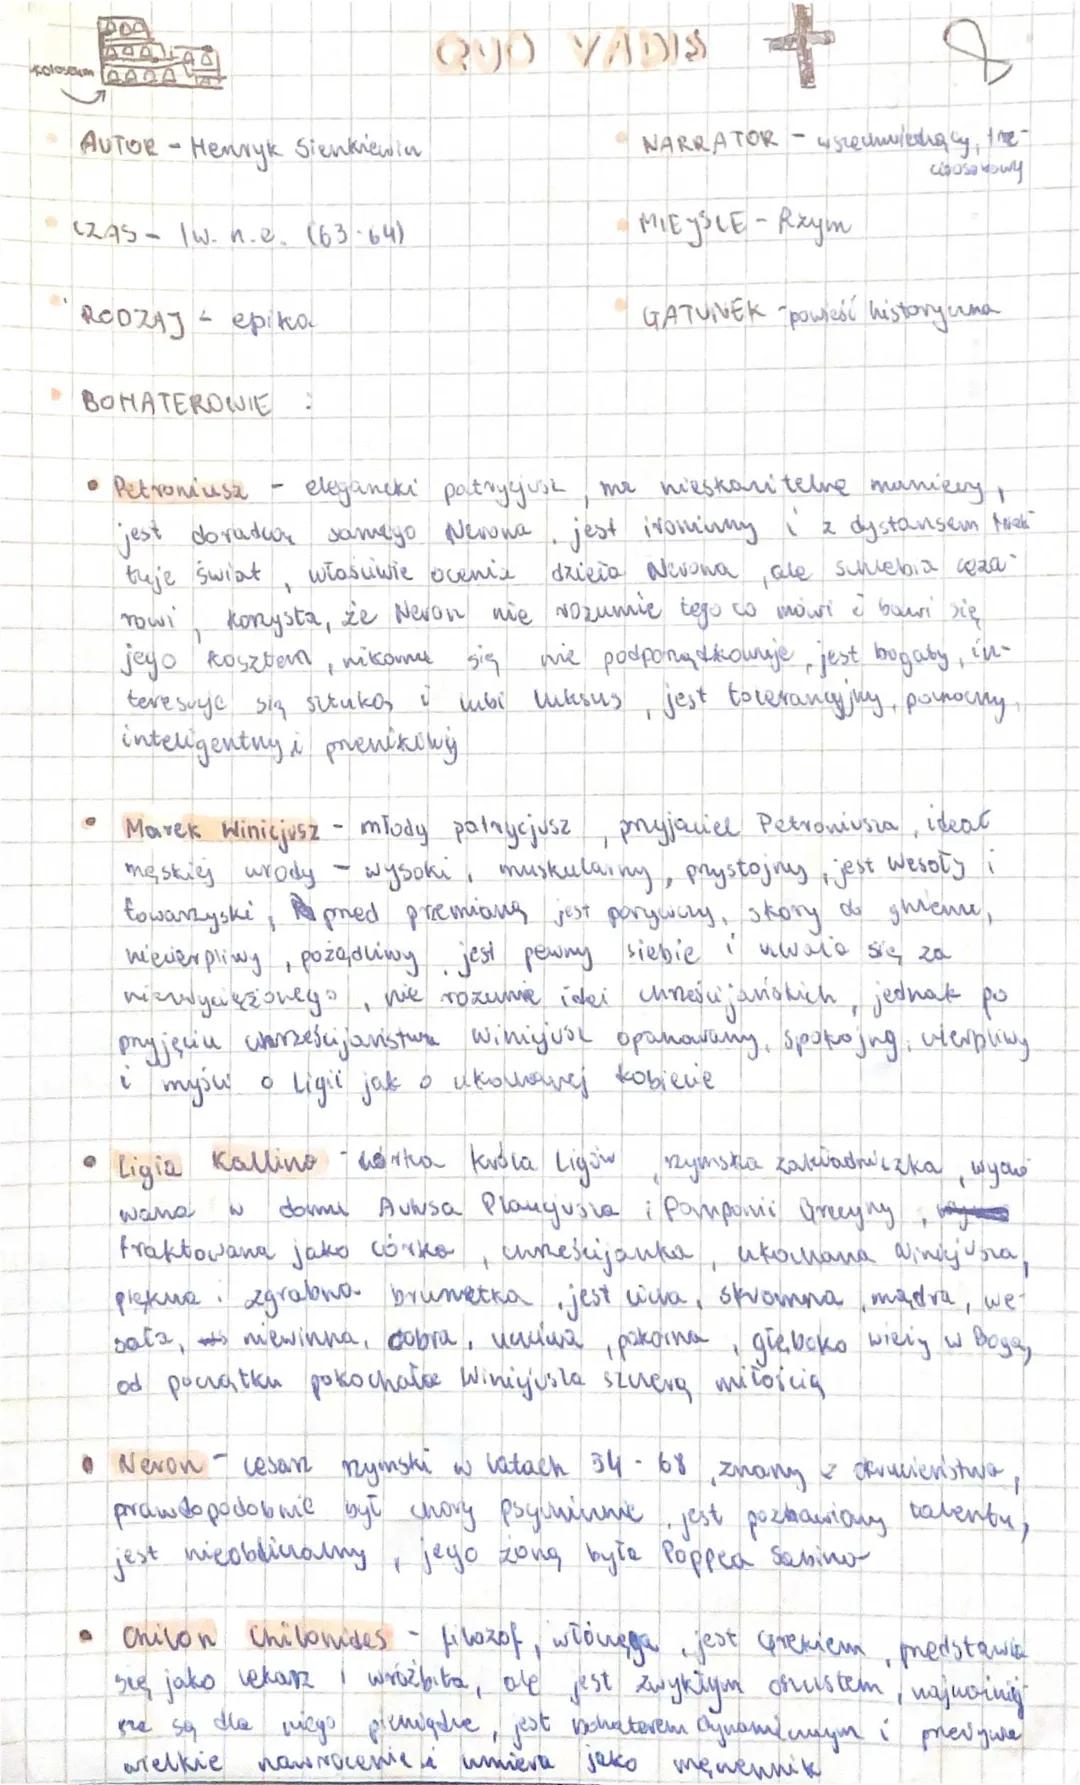 QUO VADIS
koloseum
AUTOR - Henryk Sienkiewicz
NARRATOR - wszechwiedzący, trze-
cioosobowy
CZAS - I w. n.e. (63-64)
MIEJSCE - Rzym
RODZAJ - epika
GATUNEK - powieść historyczna
BOHATEROWIE :
• Petroniusz - elegancki patrycjusz, ma nieskazitelne maniery,
jest doradcą samego Nerona, jest ironiczny i z dystansem trak-
tuje świat, właściwie ocenia dzieła Nerona, ale schlebia ceza-
rowi, korzysta, że Neron nie rozumie tego co mówi i bawi się
jego kosztem, nikomu się nie podporządkowuje, jest bogaty, in-
teresuje się sztuką i lubi luksus, jest tolerancyjny, pomocny,
inteligentny i przenikliwy
• Marek Winicjusz - młody patrycjusz, przyjaciel Petroniusza, ideał
męskiej urody - wysoki, muskularny, przystojny, jest wesoły i
towarzyski, przed przemianą jest porywczy, skory do gniewu,
niecierpliwy, pożądliwy, jest pewny siebie i uważa się za
niezwyciężonego, nie rozumie idei chrześcijańskich, jednak po
przyjęciu chrześcijaństwa Winicjusz opanowany, spokojny, cierpliwy
i myśli o Ligii jak o ukochanej kobiecie
• Ligia Kallina - córka króla Ligów, rzymska zakładniczka, wycho
wana w domu Aulusa Plaucjusza i Pomponii Grecyny,
traktowana jako córka, chrześcijanka, ukochana Winicjusza,
piękna i zgrabna brunetka, jest cicha, skromna, mądra, we-
soła, niewinna, dobra, uczciwa, pokorna, głęboko wierzy w Boga,
od początku pokochała Winicjusza szczerą miłością
• Neron - cesarz rzymski w latach 54 - 68, znany z okrucieństwa,
prawdopodobnie był chory psychicznie, jest pozbawiony talentu,
jest nieobliczalny, jego żoną była Poppea Sabina
• Chilon Chilonides - filozof, włóczęga, jest Grekiem, przedstawia
się jako lekarz i wróżbita, ale jest zwykłym oszustem, najważniej
sze są dla niego pieniądze, jest bohaterem dynamicznym i przeżywa
wielkie nawrócenie i umiera jako męczennik